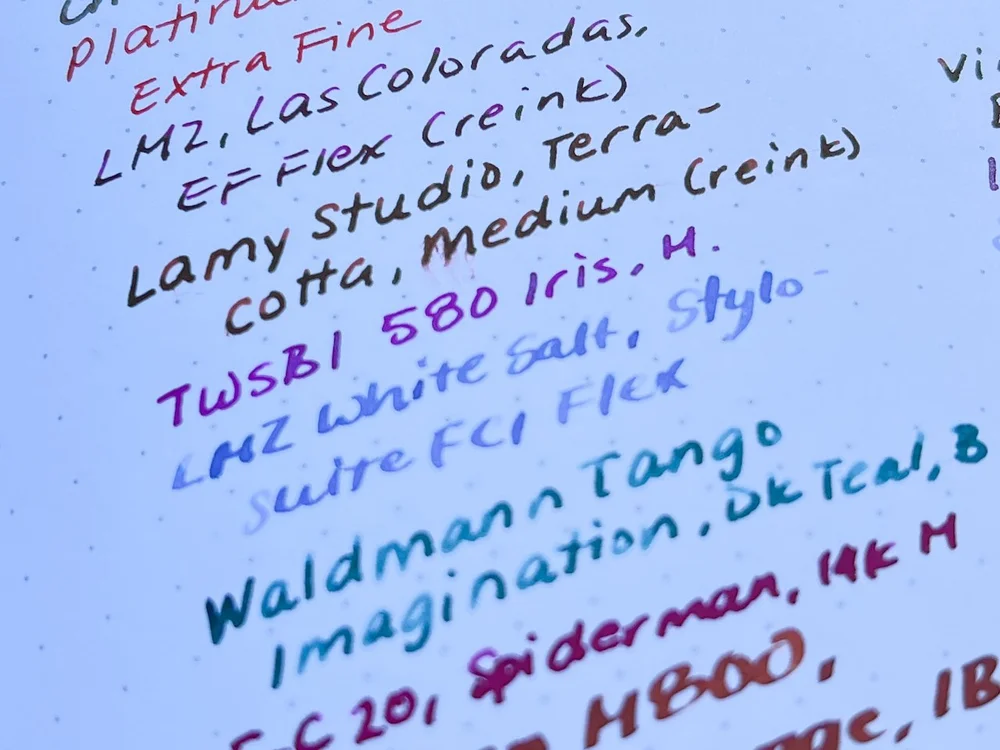 Extra Fine
LM2, Las Coloradas,
EF Flex (reink)
Lamy Studio, Terra-
cotta, Medium (reink)
TWSBI 580 Iris, M.
LM2 White Salt, Stylo-
suite FCI Flex
Waldmann Tango
Imagination, Dk Teal, B
C 20, Spiderman, 14k M
M800,
IB
Vi